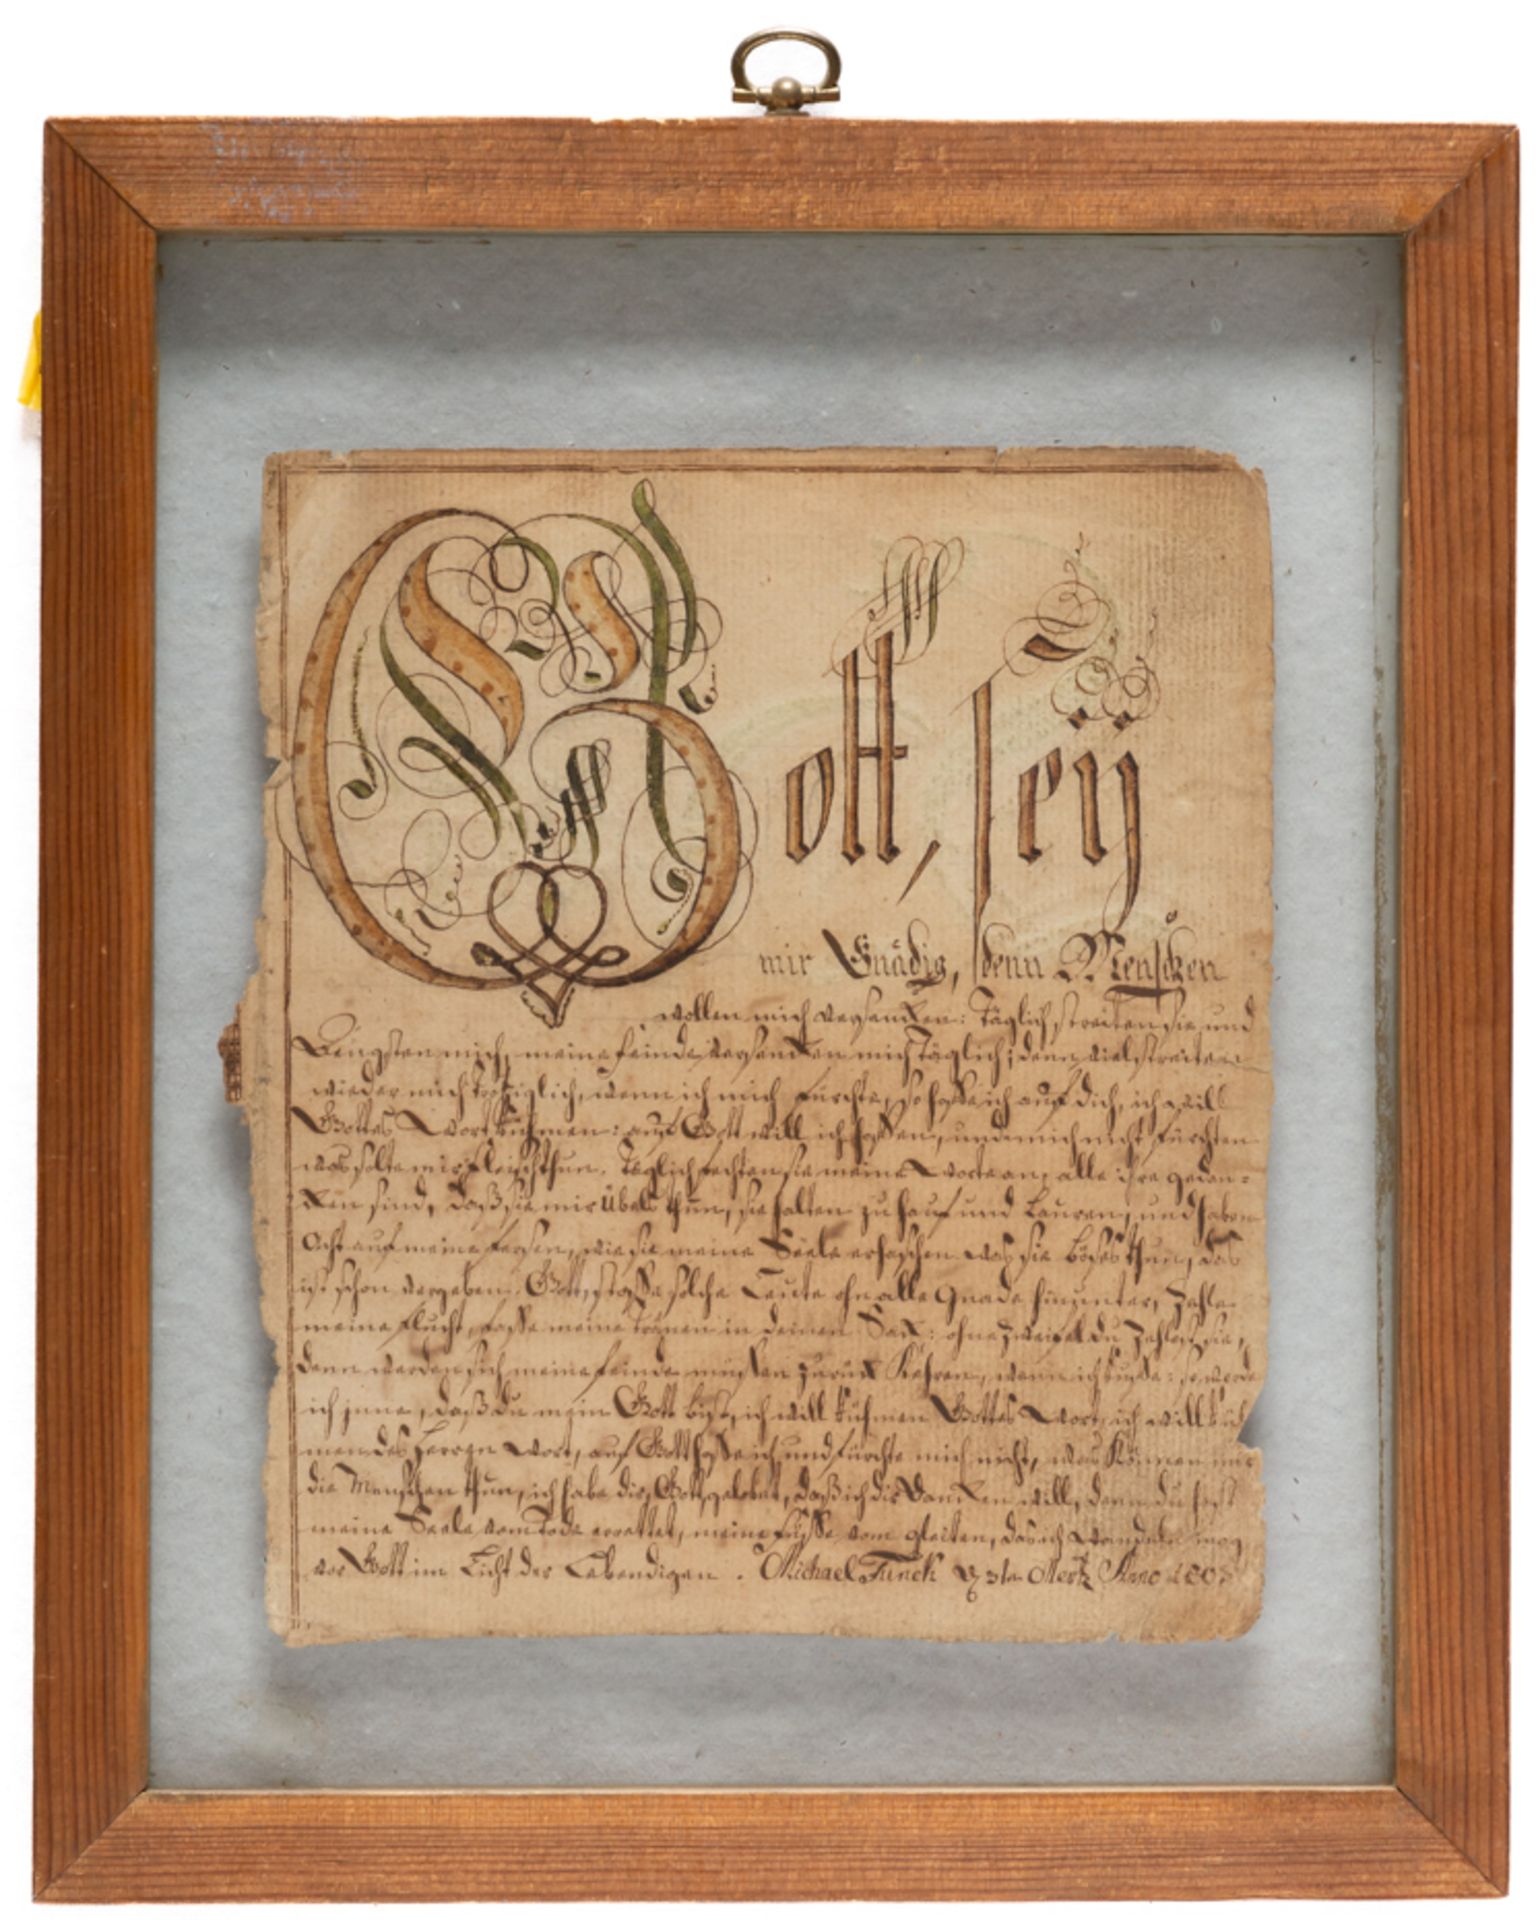 Gott, seÿ
mir Gnädig, denn Menschen
wollen mich versencken: Täglich streiten sie und
Ängsten mich, meine feinde versencken mich Täglich; denn viel streiten
wieder mich stoltziglich, wenn ich mich fürchte, so hoffe ich auf dich, ich will
Gottes Wort Rühmen: auf Gott will ich hoffen, und mich nicht fürchten
was solte mir fleisch thun. Täglich fechten sie meine Worte an, alle ihre gedan=
cken sind, daß sie mir übels thun, sie halten zu hauf und Lauren, und haben
Acht auf meine fersen, wie sie meine Seele erhaschen was sie böses thun, das
ist schon vergeben. Gott, stosse solche Leute ohn alle Gnade hinunter, Zehle
meine flucht, fasse meine Tränen in deinen Sack: ohne Zweifel du Zehlest sie,
denn werden sich meine feinde müssen zurück Kehren, wenn ich ruffe: so werde
ich inne, daß du mein Gott bist, ich will Rühmen Gottes Wort, ich will Rüh
men des Herren Wort, auf Gott hoffe ich und fürchte mich nicht, was Können mir
die Menschen thun, ich habe dir, Gott, gelobet, daß ich dir dancken will, denn du hast
meine Seele vom Tode errettet, meine füsse vom gleiten, das ich wandeln mag
vor Gott im Licht der Lebendigen. Michael Funck Mertz Anno